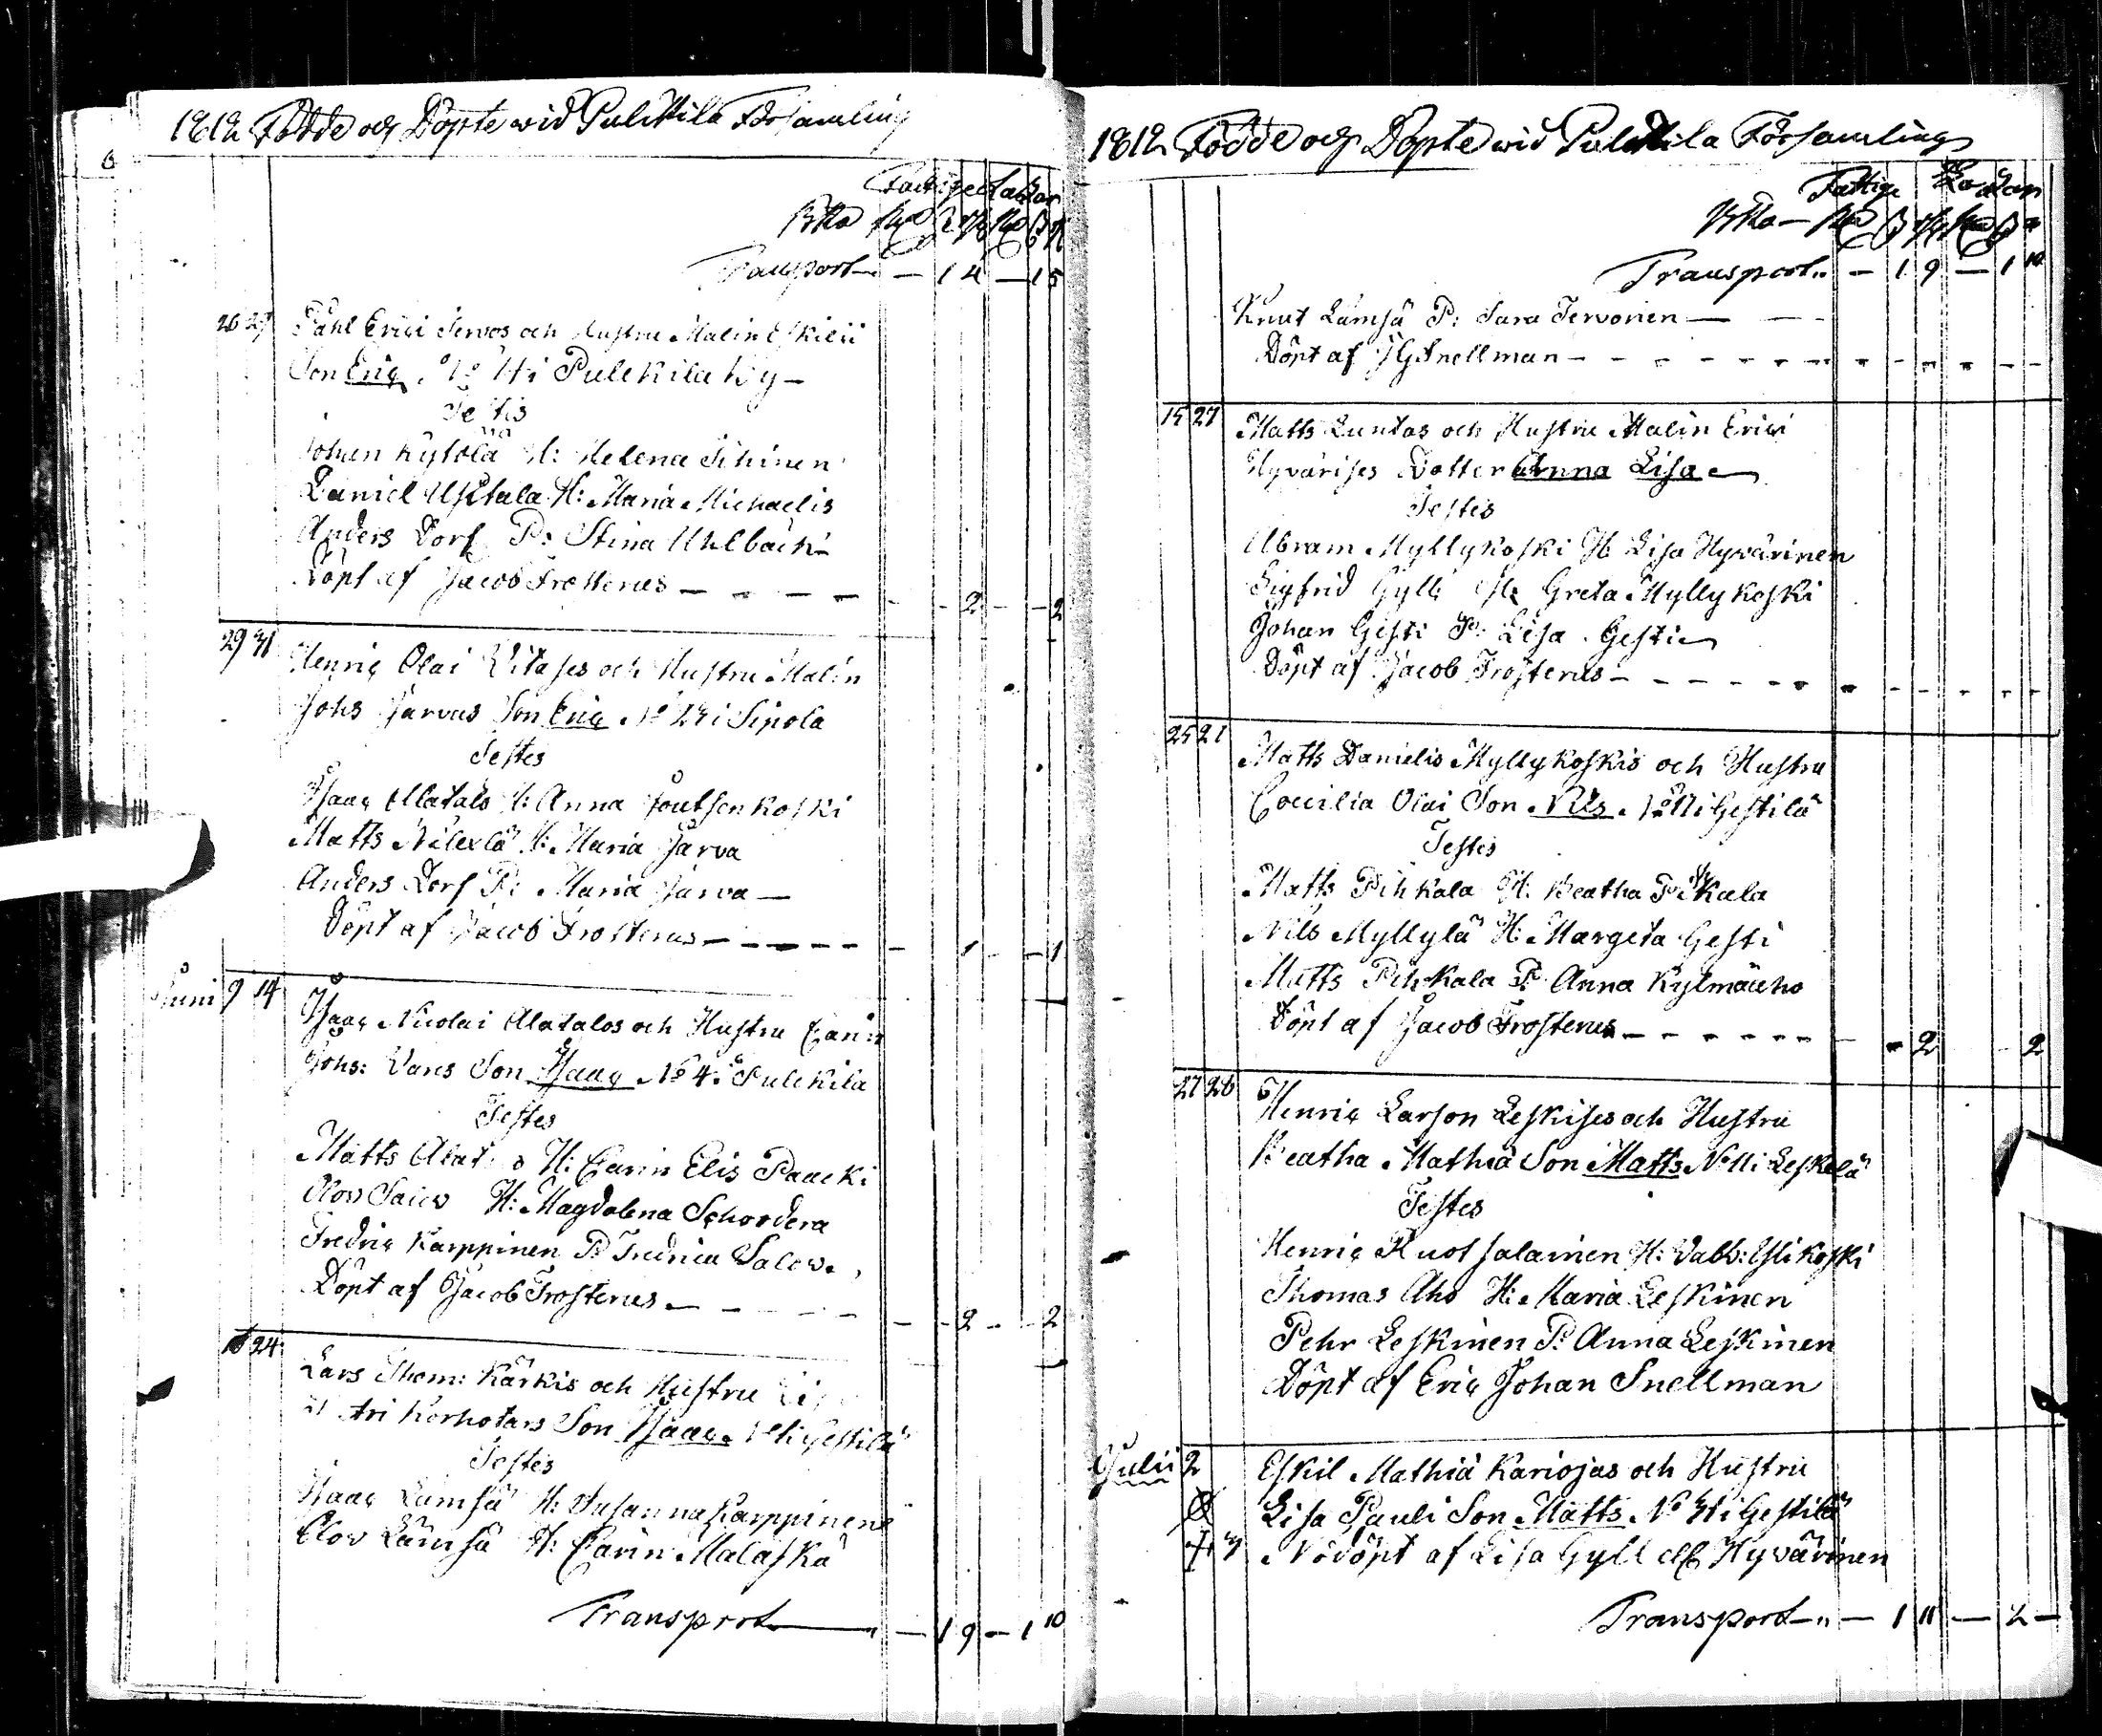 1812 Födde och Döpte wid Pulkkila Församling
6
Fattige Lassar
Transport — 1 4 — 1 5
26 27 Påhl Erici Servos och Hustru Malin Eskilii
Son Eric N:o 4 i Pulkkila by —
Testis
Johan Kytölä H: Helena Sihinen
Daniel Usktala H: Maria Michaelis
Anders Dorf P: Stina Uhlbäck
Döpt af Jacob Frosterus — 2 — 2
29 31 Henric Olai Witases och Hustru Malin
Johs Jarvas Son Eric N:o 2 i Sipola
Testes
Isaac Alatalo H: Anna Joutsenkoski
Matts Nilexlä H: Maria Jarva
Anders Dorf P: Maria Jarva —
Döpt af Jacob Frosterus — 1 — 1
Juni 9 14 Isaac Nicolai Alatalos och Hustru Carin
Johs: Vares Son Isaac N:o 4 i Pulkkila
Testes
Matts Alat H: Carin Elis Paacki
Olov H: Magdalena Schordera
Fredric Karppinen P: Fredrica
Döpt af Jacob Frosterus — 2 — 2
24 Lars Thom: Kärkis och Hustru
Korhotars Son Isaac Gestilä
Testes
Isaac Lämsä H: Susanna Karppinen
Olov Lämsä H: Carin Malaska
Transport — 1 9 — 1 10
1812 Födde och Döpte wid Pulkkila Församling
Fattige
Transport — 1 9 — 1 10
Knut Lämsä P: Sara Tervonen —
Döpt af J G Snellman —
15 27 Matts Luntas och Hustru Malin Erici
Hyvärises Dotter Anna Lisa —
Testes
Abram Myllykoski H: Lisa Hyvärinen
Sigfrid Gylli H: Greta Myllykoski
Johan Gesti P: Lisa Gesti
Döpt af Jacob Frosterus —
25 21 Matts Danielis Myllykoskis och Hustru
Coecilia Olai Son Nils N:o 11 i Gestilä
Testes
Matts Pihkala H: Beatha Pihkala
Nils Myllylä H: Margeta Gesti
Matts Pihkala P: Anna Kylmäaho
Döpt af Jacob Frosterus — 2 2
27 28 Henric Larson Leskises och Hustru
Beatha Mathiä Son Matts N:o 11 i Leskelä
Testes
Henric Ruotsalainen H: Valb: Ylikoski
Thomas Aho H: Maria Leskinen
Pehr Leskinen P: Anna Leskinen
Döpt af Eric Johan Snellman
Julii 2 Eskil Mathiä Kariojas och Hustru
Lisa Pauli Son Matts N:o 3 i Gestilä
Nödöpt af Lisa Gyll Hyvärinen
Transport — 1 11 — 2 —